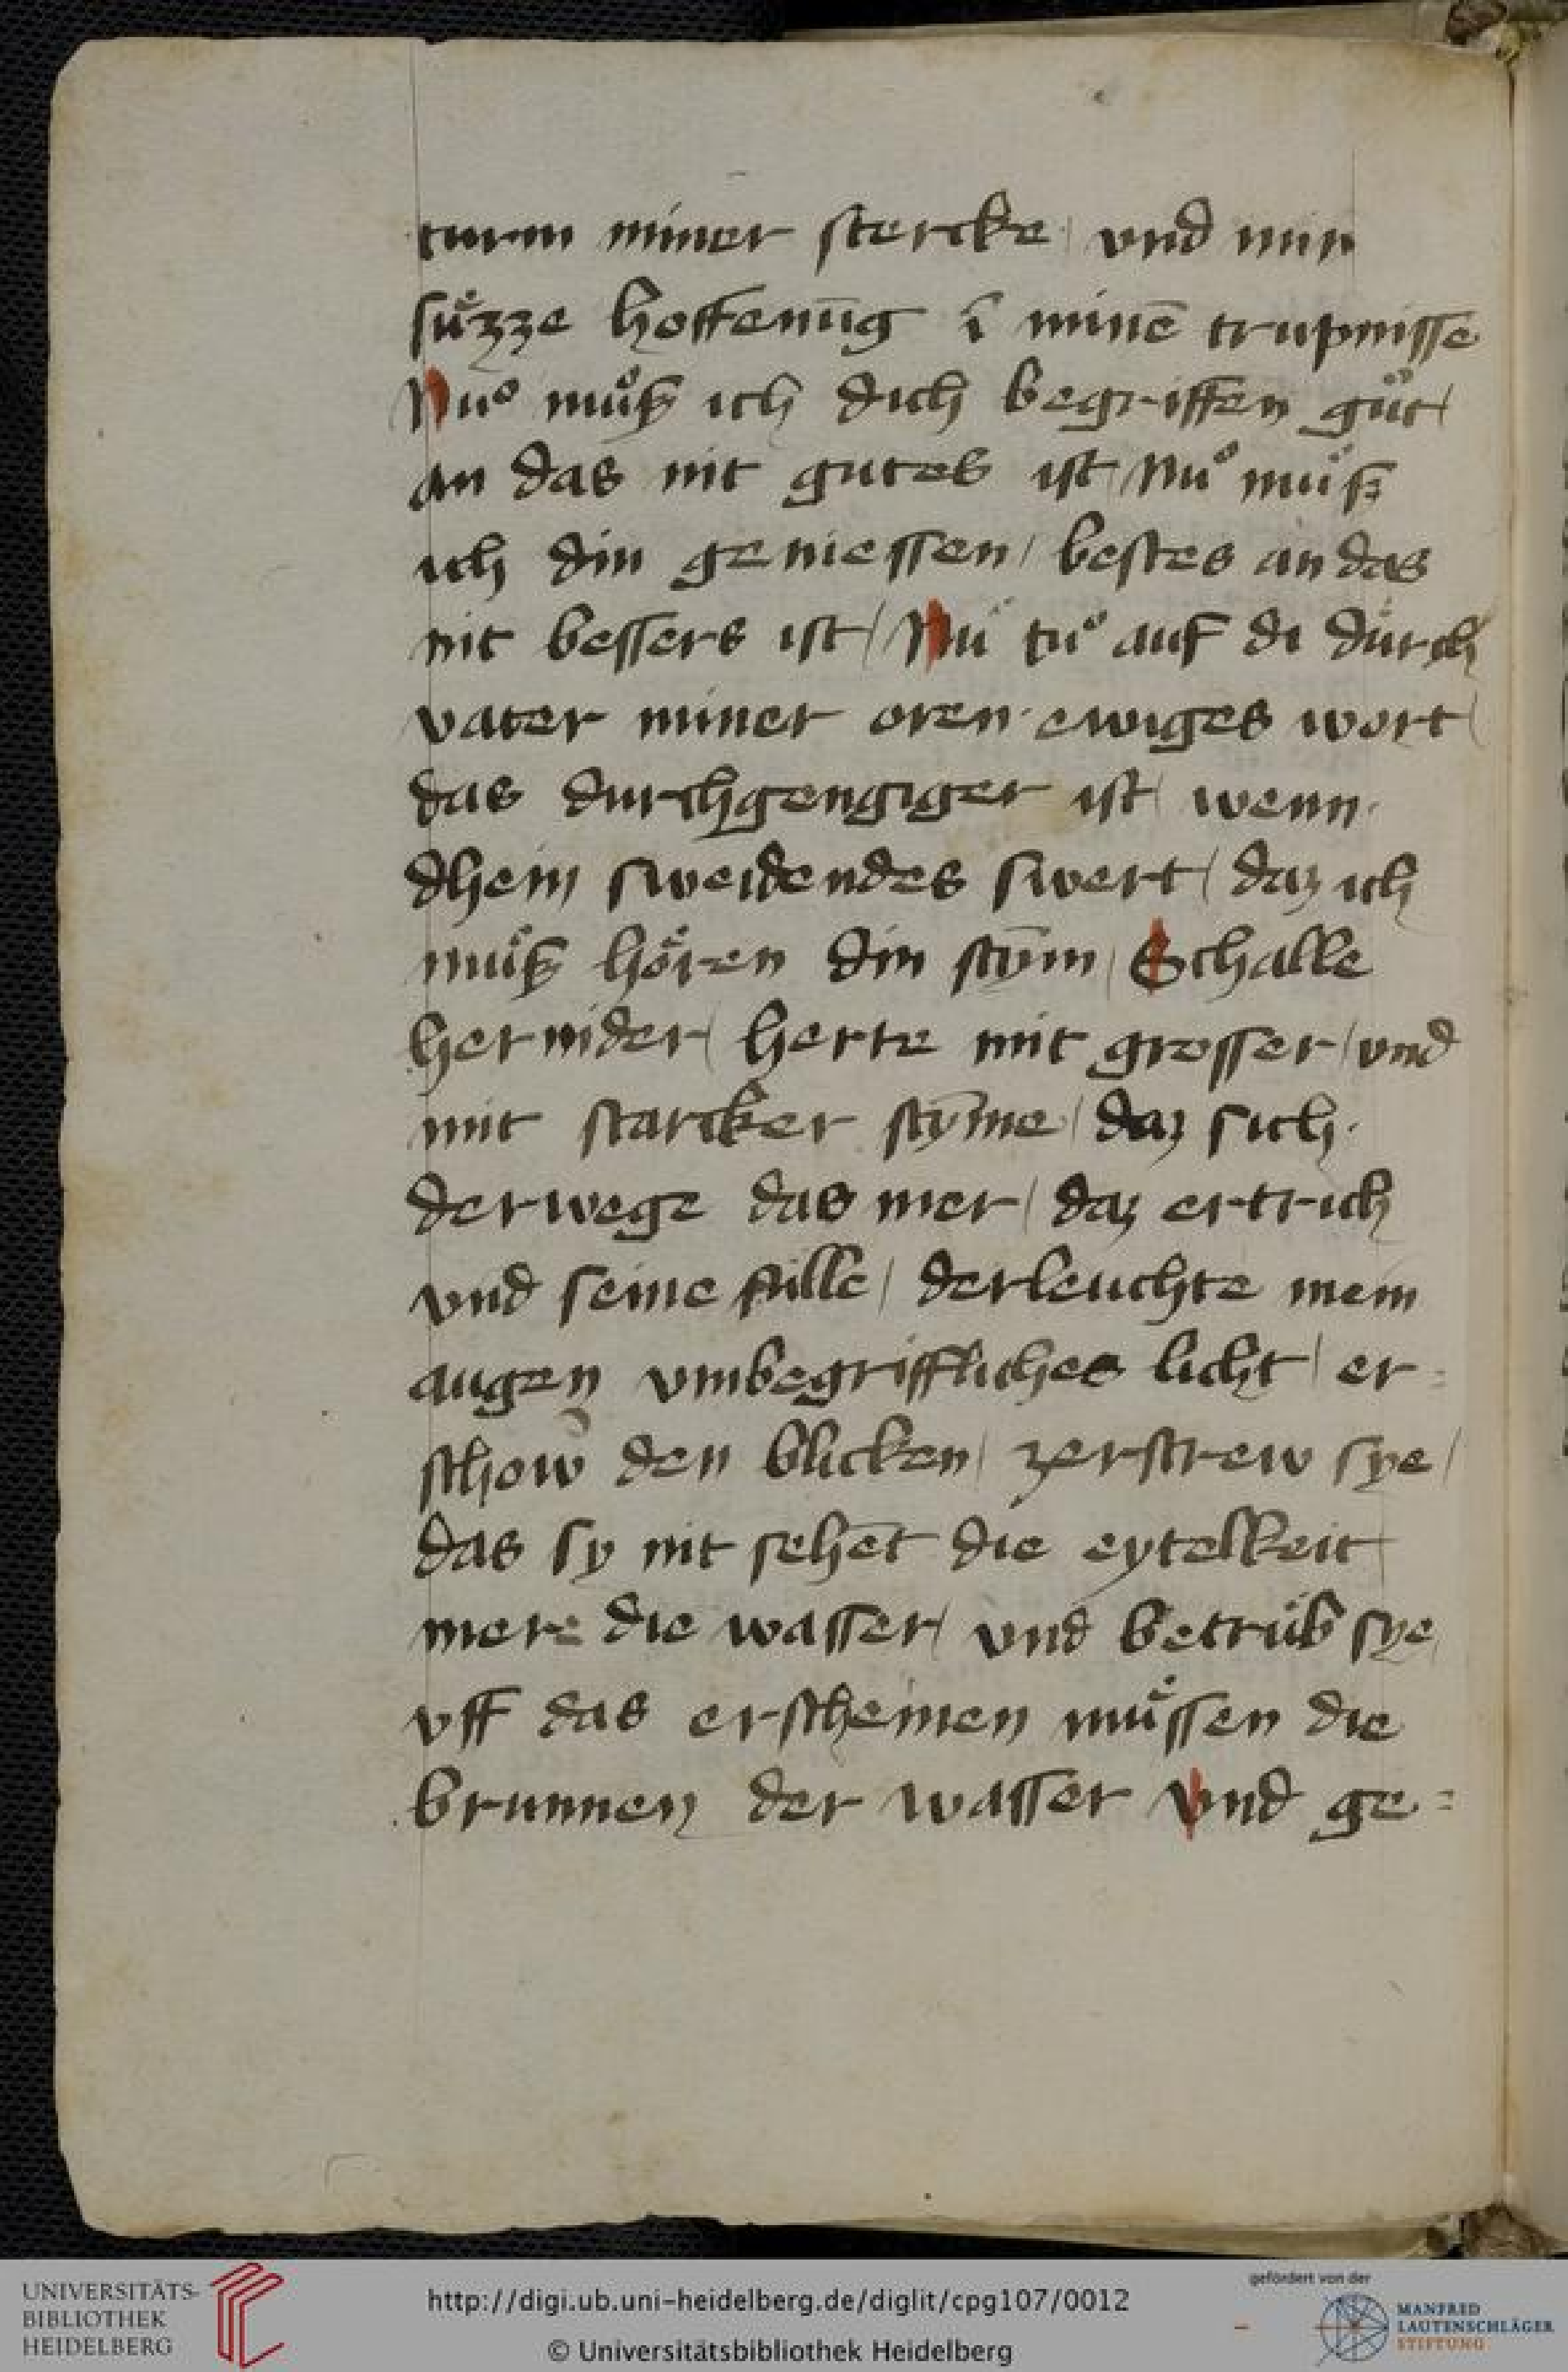 turm miner stercke / vnd min
suͤzze hoffenūg ī minē trupnisse
Nuͦ muͦß ich dich begriffen guͦt /
an das nit gutes ist / Nuͦ muͦß
ich din geniessen / bestes an das
nit bessers ist / Nuͦ tuͦ auf di durch
vater miner oren · ewiges wort /
das durchgengiger ist / wenn ·
dhein sweidendes swert / daz ich
muͦß hoͤren din stȳm / Schalle
her nider / herte mit grosser / vnd
mit starcker stȳme / daz sich ·
derwege das mer / daz ertrich
vnd seine fülle / derleuchte mein
augen vmbegriffliches licht / er=
schow den blicken / zerstrew sye /
das sy nit sehēt die eytelkeit
mere die wasser / vnd betrüb sye
vff das erscheinen muͤssen die
brunnen der wasser vnd ge=
UNIVERSITÄTS-
BIBLIOTHEK
HEIDELBERG
http://digi.ub.uni-heidelberg.de/diglit/cpg107/0012
© Universitätsbibliothek Heidelberg
gefördert von der
MANFRED
LAUTENSCHLÄGER
STIFTUNG